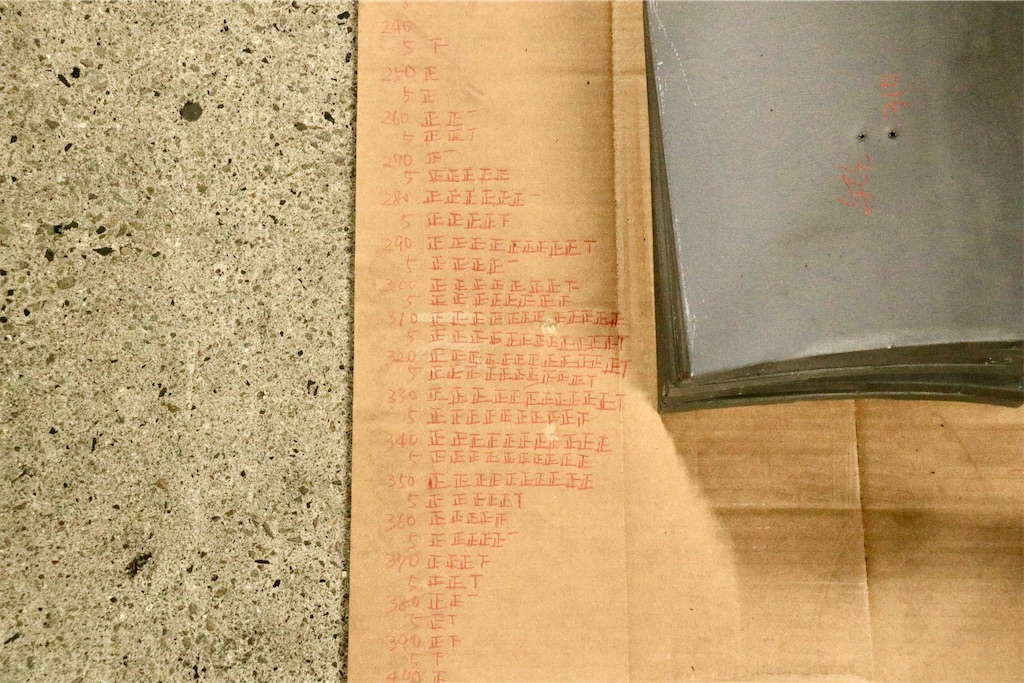 240
5 下
250 正
5 正
260 正正一
5 正正丅
270 正一
5 正正正正正
280 正正正正正正一
5 正正正正下
290 正正正正正正正正正丅
5 正正正正一
300 正正正正正正正下
5 正正正正正正正正
310 正正正正正正正正正正正
5 正正正正正正正正正正正丅
320 正正正正正正正正正正正正丅
5 正正正正正正正正正正丅
330 正正正正正正正正正正正丅
5 正正正正正正正正正下
340 正正正正正正正正正正正
5 正正正正正正正正正
350 正正正正正正正正正
5 正正正正正丅
360 正正正正正
5 正正正正正一
370 正正正下
5 正正丅
380 正正一
5 正丅
390 正下
5 下
400 正